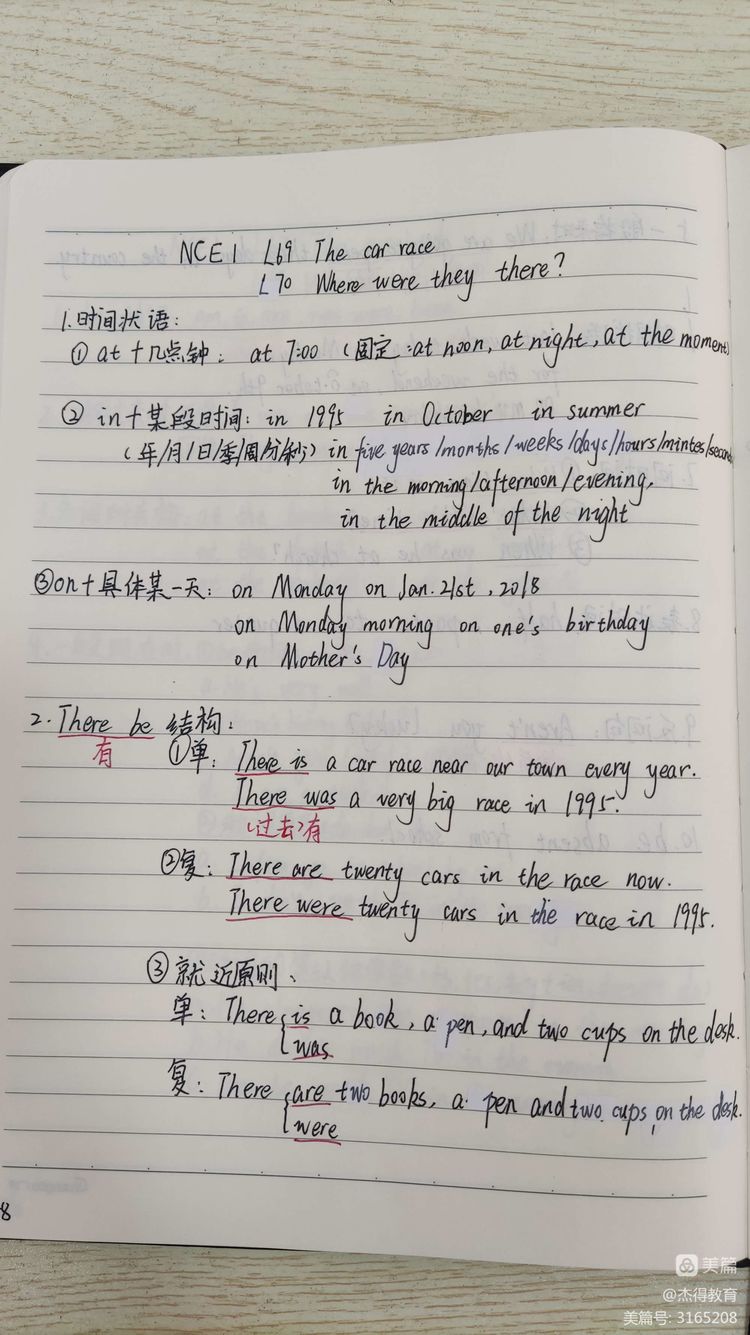 NCE1 L69 The car race
L70 Where were they there?
1.时间状语:
① at + 几点钟: at 7:00 (固定:at noon, at night, at the moment)
② in + 某段时间: in 1995 in October in summer
(年/月/日/季/周/分/秒) in five years/months/weeks/days/hours/mintes/second
in the morning/afternoon/evening,
in the middle of the night
③ on + 具体某一天: on Monday on Jan. 21st, 2018
on Monday morning on one's birthday
on Mother's Day
2. There be 结构:
有 ①单: There is a car race near our town every year.
There was a very big race in 1995.
(过去)有
②复: There are twenty cars in the race now.
There were twenty cars in the race in 1995.
③就近原则、
单: There is a book, a pen, and two cups on the desk.
was
复: There are two books, a pen and two cups on the desk.
were
8
美篇
@杰得教育
美篇号: 3165208